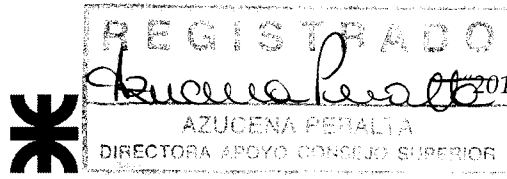 REGISTRADO
Azucena Peralta
201
AZUCENA PERALTA
DIRECTORA APOYO CONSEJO SUPERIOR